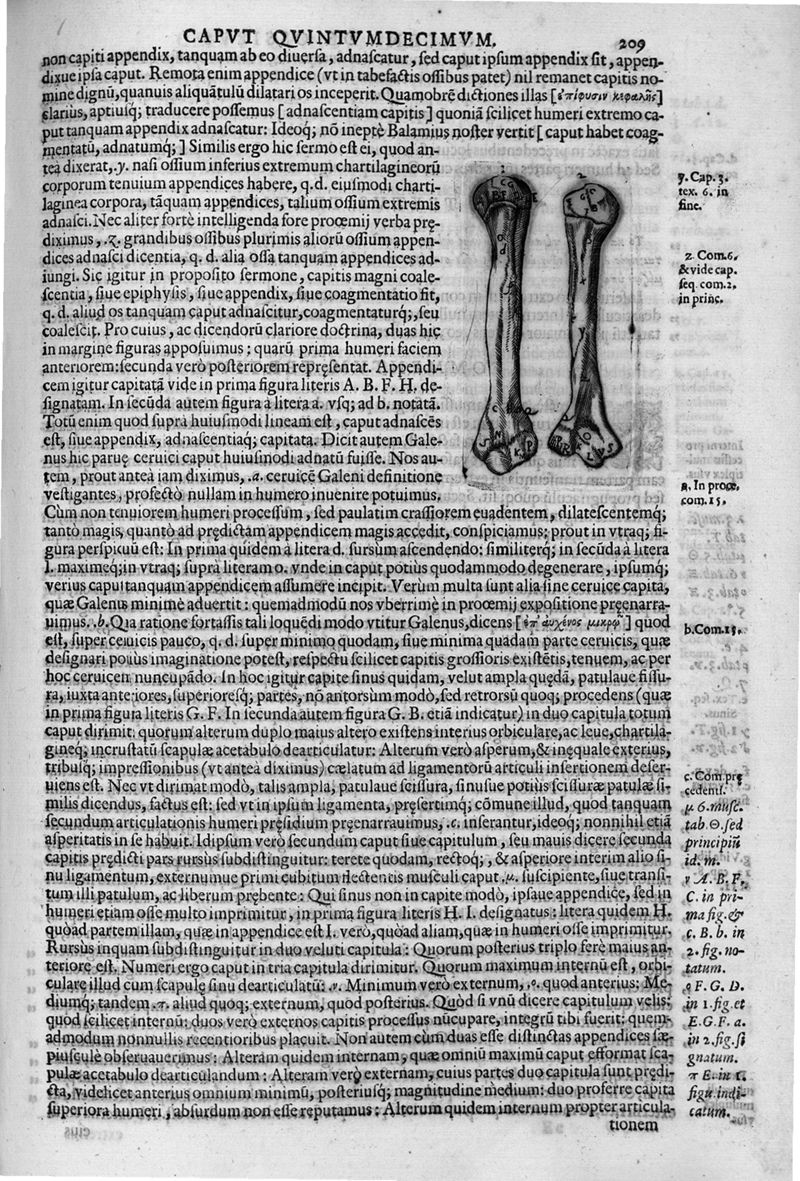 CAPVT QVINTVMDECIMVM. 209
non capiti appendix, tanquam ab eo diuersa, adnascatur, sed caput ipsum appendix sit, appen-
dixue ipsa caput. Remota enim appendice (vt in tabefactis ossibus patet) nil remanet capitis no-
mine dignũ, quanuis aliquãtulũ dilatari os inceperit. Quamobrẽ dictiones illas [ἐπίφυσιν κεφαλῆς]
clarius, aptiusq; traducere possemus [adnascentiam capitis] quoniã scilicet humeri extremo ca-
put tanquam appendix adnascatur: Ideoq; nõ ineptè Balamius noster vertit [caput habet coag-
mentatũ, adnatumq;] Similis ergo hic sermo est ei, quod an-
tea dixerat, .y. nasi ossium inferius extremum chartilagineorũ
corporum tenuium appendices habere, q.d. eiusmodi charti-
laginea corpora, tãquam appendices, talium ossium extremis
adnasci. Nec aliter fortè intelligenda fore proœmij verba prę-
diximus, .z. grandibus ossibus plurimis aliorũ ossium appen-
dices adnasci dicentia, q. d. alia ossa tanquam appendices ad-
iungi. Sic igitur in proposito sermone, capitis magni coale-
scentia, siue epiphysis, siue appendix, siue coagmentatio fit,
q. d. aliud os tanquam caput adnascitur, coagmentaturq;, seu
coalescit. Pro cuius, ac dicendorũ clariore doctrina, duas hic
in margine figuras apposuimus: quarũ prima humeri faciem
anteriorem: secunda verò posteriorem repręsentat. Appendi-
cem igitur capitatã vide in prima figura literis A. B. F. H. de-
signatam. In secũda autem figura à litera a. vsq; ad b. notatã.
Totũ enim quod supra huiusmodi lineam est, caput adnascẽs
est, siue appendix, adnascentiaq; capitata. Dicit autem Gale-
nus hic paruę ceruici caput huiusmodi adnatũ fuisse. Nos au-
tem, prout antea iam diximus, .a. ceruicẽ Galeni definitione
vestigantes, profectò nullam in humero inuenire potuimus.
Cùm non tenuiorem humeri processum, sed paulatim crassiorem euadentem, dilatescentemq;
tantò magis, quantò ad prędictam appendicem magis accedit, conspiciamus; prout in vtraq; fi-
gura perspicuũ est: In prima quidem à litera d. sursum ascendendo: similiterq; in secũda à litera
l. maximeq; in vtraq; supra literam o. vnde in caput potius quodammodo degenerare, ipsumq;
verius caput tanquam appendicem assumere incipit. Verùm multa sunt alia sine ceruice capita,
quæ Galenus minimè aduertit: quemadmodũ nos vberrimè in proœmij expositione pręenarra-
uimus. .b. Qua ratione fortassis tali loquẽdi modo vtitur Galenus, dicens [ἐπ᾽ αὐχένος μικρῷ] quod
est, super ceruicis pauco, q. d. super minimo quodam, siue minima quadam parte ceruicis, quæ
designari potius imaginatione potest, respectu scilicet capitis grossioris existẽtis, tenuem, ac per
hoc ceruicen nuncupãdo. In hoc igitur capite sinus quidam, velut ampla quędã, patulaue fissu-
ra, iuxta anteriores, superioresq; partes, nõ antorsùm modò, sed retrorsũ quoq; procedens (quæ
in prima figura literis G. F. In secunda autem figura G. B. etiã indicatur) in duo capitula totum
caput dirimit: quorum alterum duplo maius altero existens interius orbiculare, ac leue, chartila-
gineq; incrustatũ scapulæ acetabulo dearticulatur: Alterum verò asperum, & inęquale exterius,
tribusq; impressionibus (vt antea diximus) cælatum ad ligamentorũ articuli insertionem deser-
uiens est. Nec vt dirimat modò, talis ampla, patulaue scissura, sinusue potius scissuræ patulæ si-
milis dicendus, factus est: sed vt in ipsum ligamenta, pręsertimq; cõmune illud, quod tanquam
secundum articulationis humeri pręsidium pręenarrauimus, .c. inserantur, ideoq; nonnihil etiã
asperitatis in se habuit. Idipsum verò secundum caput siue capitulum, seu mauis dicere secunda
capitis prędicti pars rursus subdistinguitur: terete quodam, rectoq;, & asperiore interim alio si-
nu ligamentum, externumue primi cubitum flectentis musculi caput .μ. suscipiente, siue transi-
tum illi patulum, ac liberum prębente: Qui sinus non in capite modò, ipsaue appendice, sed in
humeri etiam osse multo imprimitur, in prima figura literis H. I. designatus: litera quidem H.
quòad partem illam, quæ in appendice est I. verò, quòad aliam, quæ in humeri osse imprimitur.
Rursùs inquam subdistinguitur in duo veluti capitula: Quorum posterius triplo ferè maius an-
teriore est. Numeri ergo caput in tria capitula dirimitur. Quorum maximum internũ est, orbi-
culare illud cum scapulę sinu dearticulatũ: .ν. Minimum verò externum, .ο. quod anterius: Me-
diumq; tandem .π. aliud quoq; externum, quod posterius. Quòd si vnũ dicere capitulum velis:
quod scilicet internũ: duos verò externos capitis processus nũcupare, integrũ tibi fuerit: quem-
admodum nonnullis recentioribus placuit. Non autem cùm duas esse distinctas appendices sæ-
piusculè obseruauerimus: Alteram quidem internam, quæ omniũ maximũ caput efformat sca-
pulæ acetabulo dearticulandum: Alteram verò externam, cuius partes duo capitula sunt prędi-
cta, videlicet anterius omnium minimũ, posteriusq; magnitudine medium: duo proferre capita
superiora humeri, absurdum non esse reputamus: Alterum quidem internum propter articula-
tionem
y. Cap. 3.
tex. 6. in
fine.
z Com. 6.
& vide cap.
seq. com. 2.
in princ.
a. In proœ.
com. 15.
b. Com. 15.
c. Com. prę
cedenti.
μ 6. musc.
tab. Θ. sed
principiũ
id. m.
ν A. B. F.
C. in pri-
ma fig. &
ς. B. b. in
2. fig. no-
tatum.
ο F. G. D.
in 1. fig. et
E. G. F. a.
in 2. fig. si
gnatum.
π E. in 1.
figu. indi-
catum.